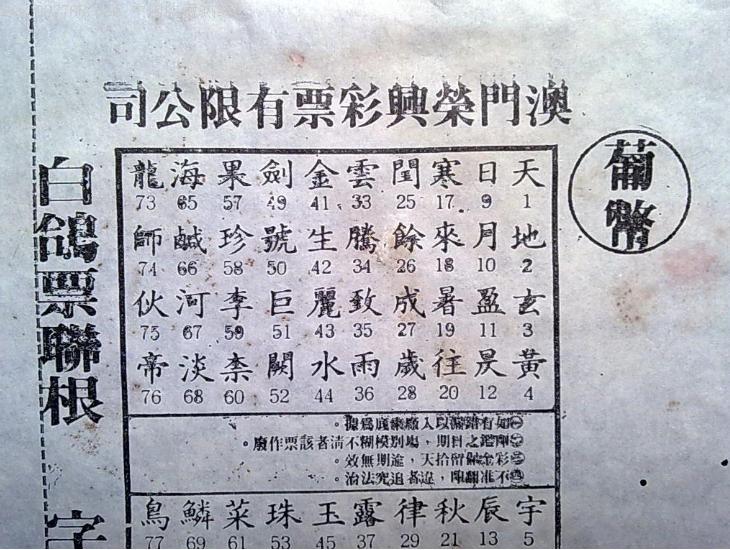 澳門榮興彩票有限公司
葡幣
天 日 寒 閏 雲 金 劍 果 海 龍
1 9 17 25 33 41 49 57 65 73
地 月 來 餘 騰 生 號 珍 鹹 師
2 10 18 26 34 42 50 58 66 74
玄 盈 暑 成 致 麗 巨 李 河 伙
3 11 19 27 35 43 51 59 67 75
黃 昃 往 歲 雨 水 闕 柰 淡 帝
4 12 20 28 36 44 52 60 68 76
如有錯漏以入廠底為據。
印鑑之日期,場別模糊不清者該票作廢。
彩金保留拾天,逾期無效。
不准翻印,違者追究法治。
宇 辰 秋 律 露 玉 珠 菜 鱗 鳥
5 13 21 29 37 45 53 61 69 77
白鴿票聯根 字